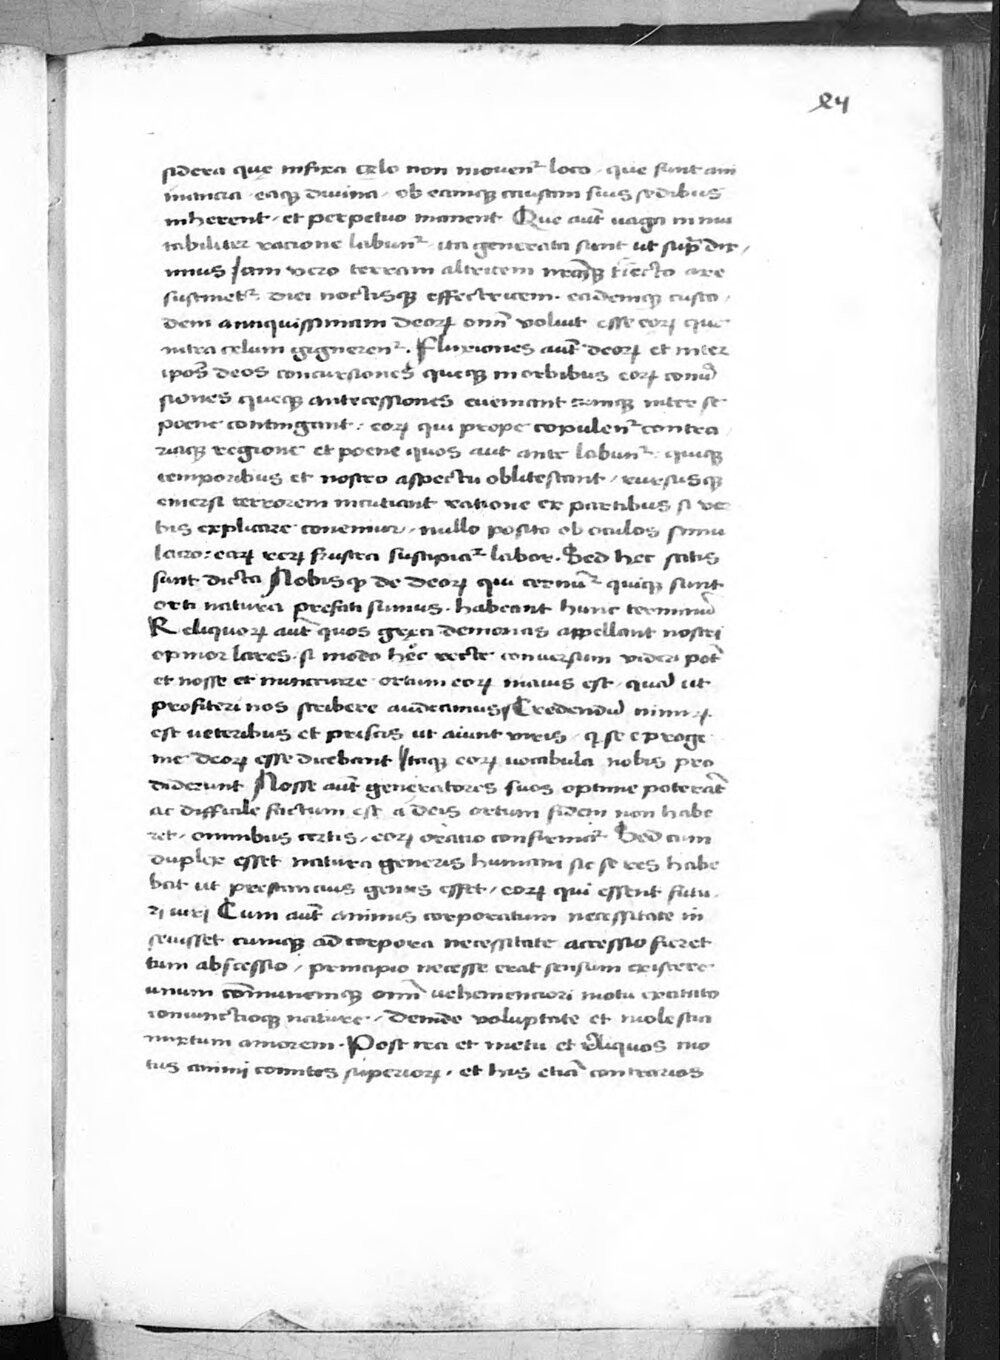 24
sidera que infixa celo non mouent᷑ loco · que sunt ani
mancia · eaq̨ diuina · ob eamq̨ causam suis sedibus
inherent · et perpetuo manent Que aut̄ uaga mmu
tabiliter racione labunt᷑ ita generata sunt ut sup̄ dix
imus Iam vero terram altricem nr̄amq̨ t̄iecto axe
sustinet᷑ diei noctisq̨ effectricem · eademq̨ custo
dem antiquissimam deoꝝ om̄ voluit esse eoꝝ que
intra celum gignerent᷑ . Fluxiones aut̄ deoꝝ et inter
ipos̄ deos concursiones queq̨ in orbibus eoꝝ conū̄
siones queq̨ antecessiones eueniant inter se
poene contingant · eoꝝ qui prope copulent᷑ contra
riaq̨ regione et poene quos aut ante labunt᷑ quiq̨
temporibus et nostro aspectu oblitescant · rursusq̨
emersi terrorem incutiant ratione ex partibus si ver
bis explicare conemur · nullo posito ob oculos simu
lacro: eaꝝ reꝝ frustra suscipiat᷑ labor . Sed hec satis
sunt dicta Nobisq̨ de deoꝝ qui cernunt᷑ quiq̨ sunt
orti natura prefati sumus · habeant hunc terminū
Reliquoꝝ aut̄ quos greci demonas appellant nostri
opinor lares · si modo hec recte conuersum videri pot̄
et nosse et nunctiare ortum eoꝝ maius est · quā ut
profiteri nos scribere audeamus Credendū nimiꝝ
est ueteribus et priscis ut aiunt viris · q̨ se e proge
nie deoꝝ esse dicebant Itaq̨ eoꝝ uocabula nobis pro
diderunt Nosse aut̄ generatores suos optime poterāt
ac difficile factum est a deis ortum fidem non habe
ret · omnibus certis · eoꝝ oratio confirmat᷑ Sed cum
duplex esset natura generis humani sic se res habe
bat ut prestancius genus esset · eoꝝ qui essent futu
ri uiri Cum aut̄ animus corporatum necessitate in
seuisset cumq̨ ad corpora necessitate accessio fieret
tum abscessio · principio necesse erat sensum existere
unum com̄unemq̨ om̄i vehemenciori motu excitato
coniunctioq̨ nature · deinde voluptate et molestia
mixtum amorem . Post ira et metu et reliquos mo
tus animi comites superioꝝ · et his etiā contrarios